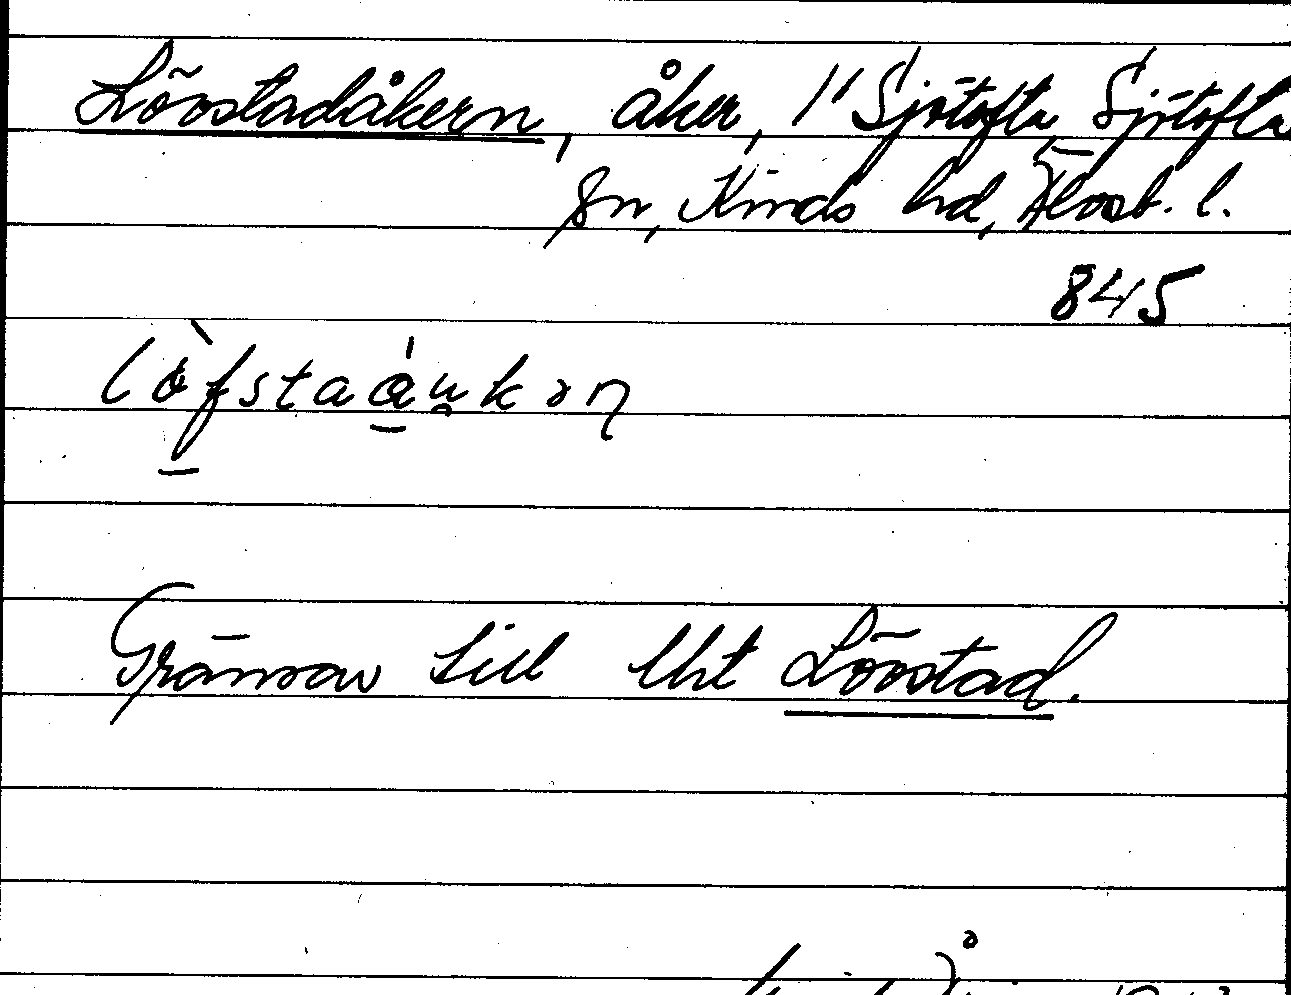 Lövstadåkern, åker, 1" Sjötofta, Sjötofta
sn, Kinds hd, Älvsb. l.
845
löfstaåu̯kən
Gränsar till lht Lövstad.